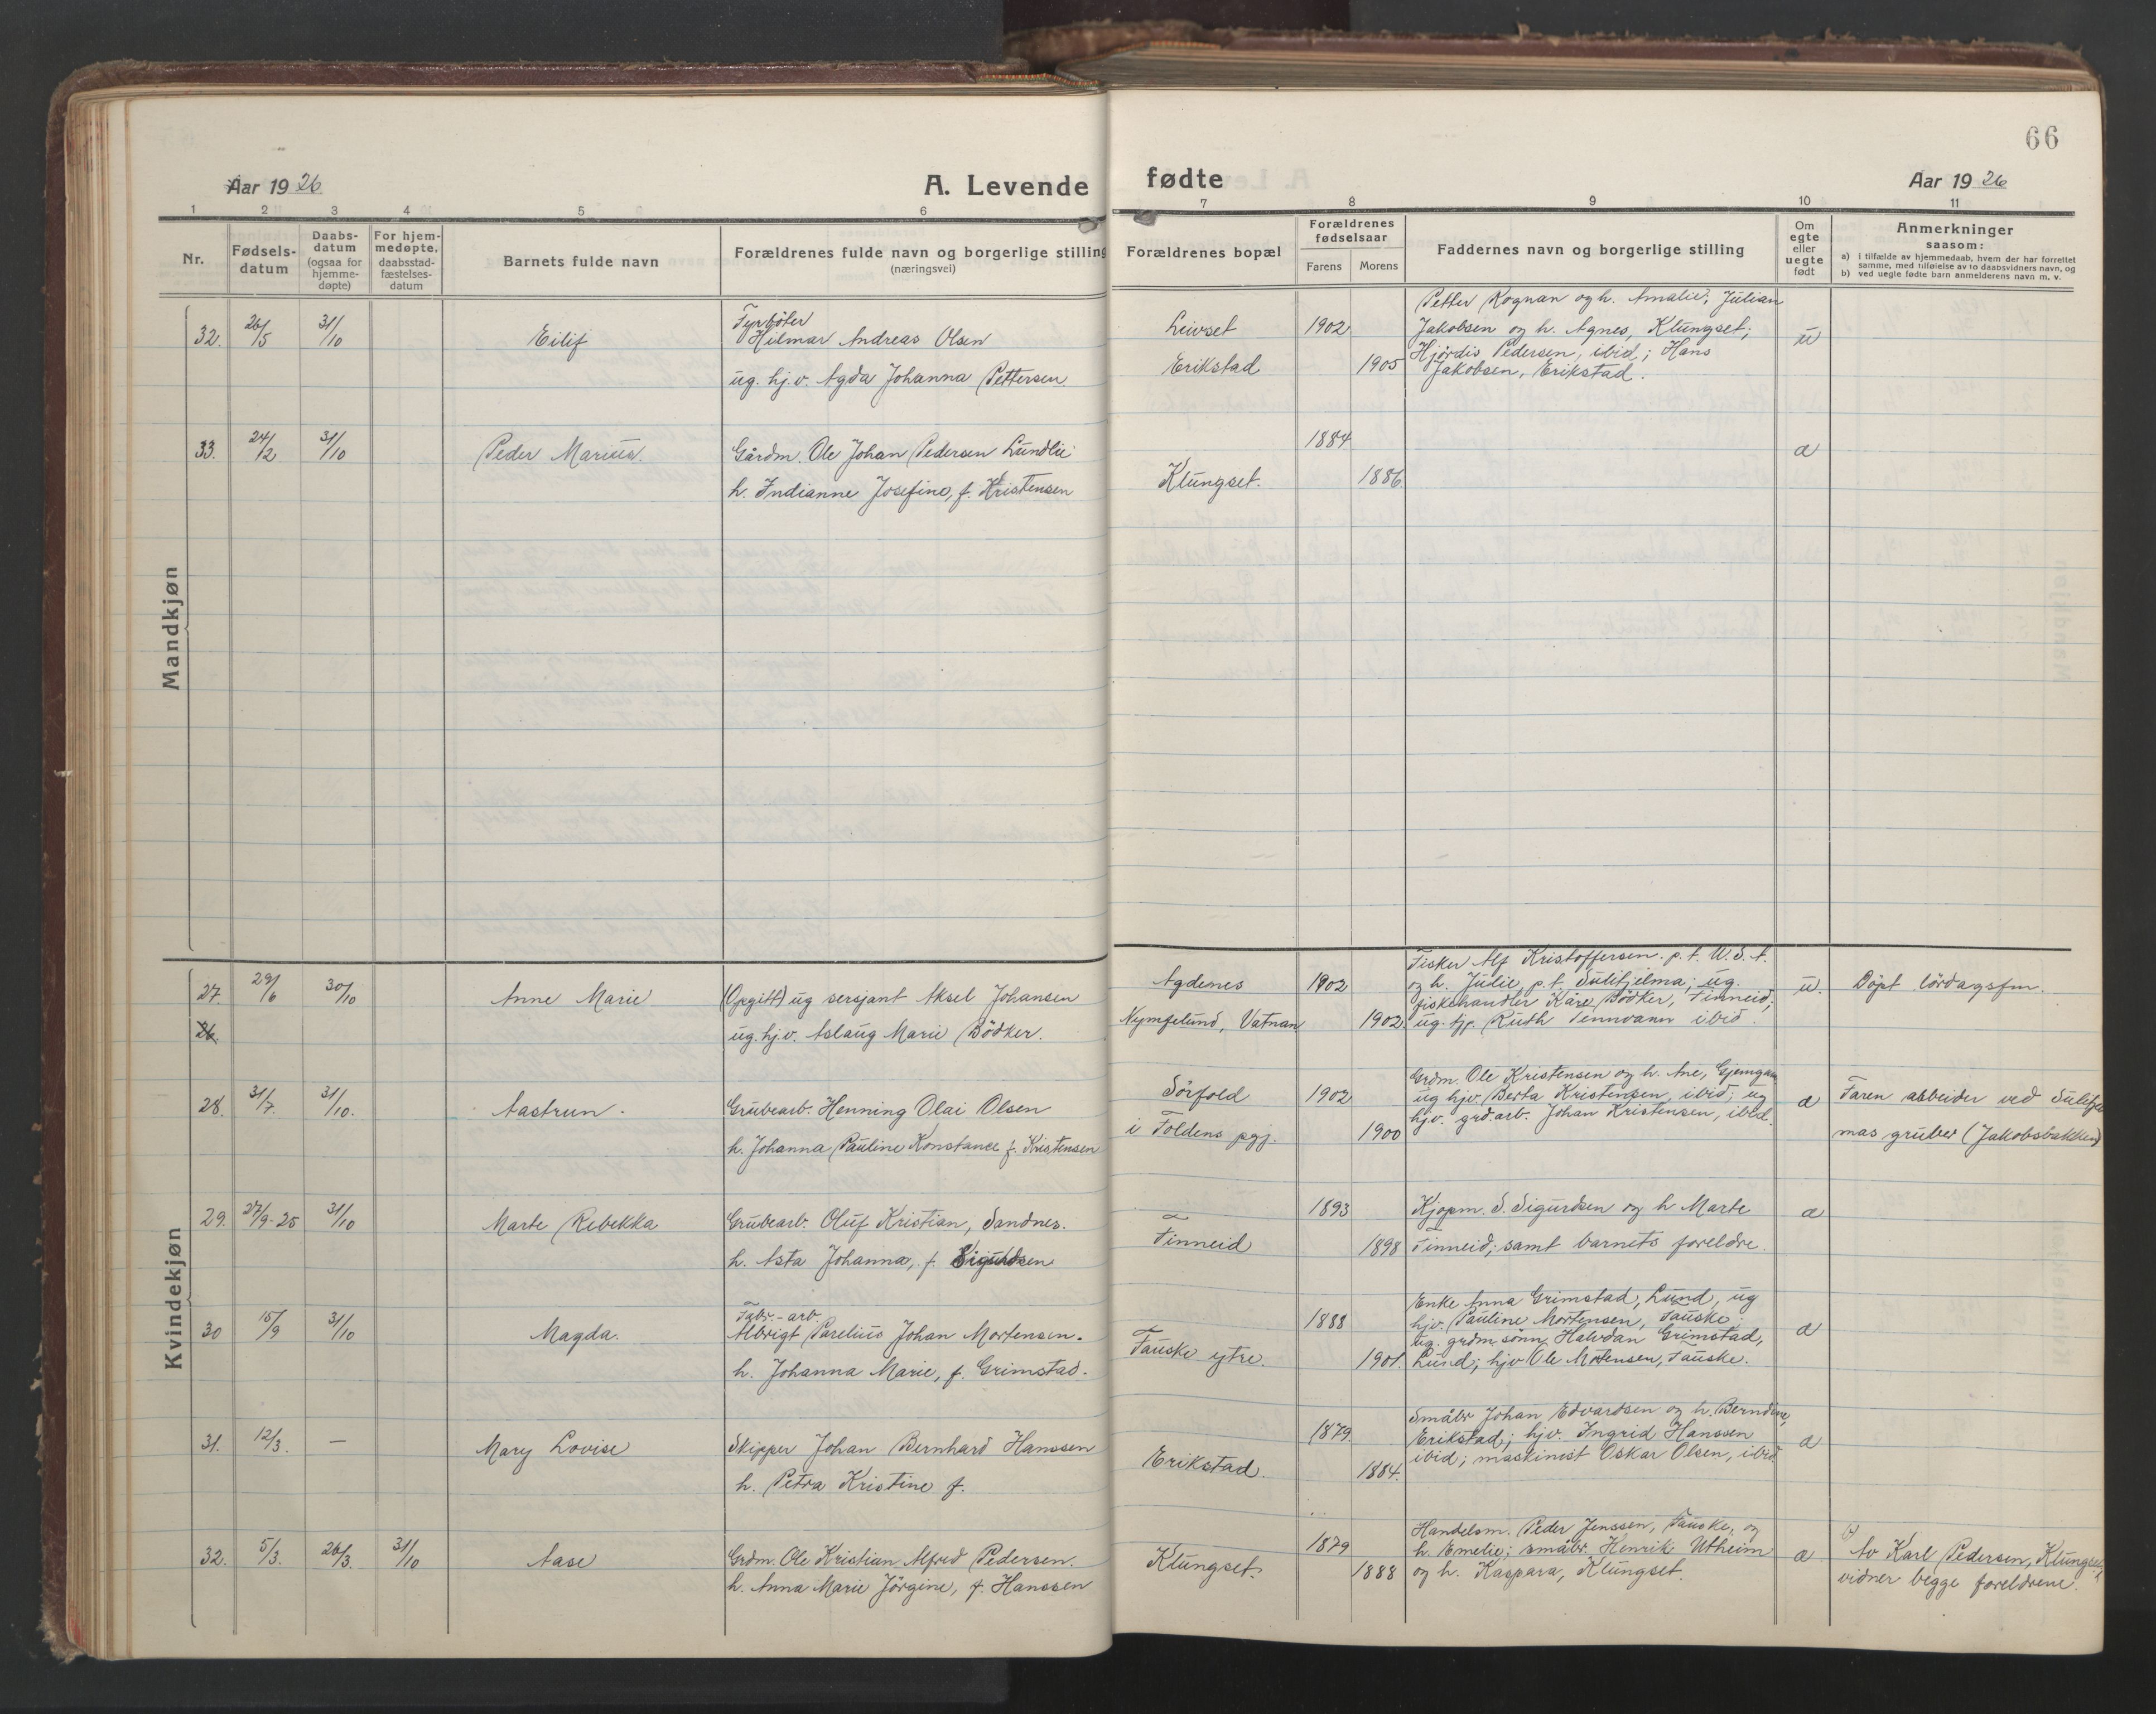 66
Aar 1926
A. Levende fødte
Aar 1926
1 2 3 4 5 6 7 8 9 10 11
Nr.
Fødsels-
datum
Daabs-
datum
(ogsaa for
hjemme-
døpte)
For hjem-
medøpte,
daabsstad-
fæstelses-
datum
Barnets fulde navn
Forældrenes fulde navn og borgerlige stilling
(næringsvei)
Forældrenes bopæl
Forældrenes
fødselsaar
Farens Morens
Faddernes navn og borgerlige stilling
Om
egte
eller
uegte
født
Anmerkninger
saasom:
a) i tilfælde av hjemmedaab, hvem der har forrettet
samme, med tilføielse av to daabsvidners navn, og
b) ved uegte fødte barn anmelderens navn m. v.
Mandkjøn
32. 26/5 31/10 Eilif
Fyrbøter
Hilmar Andreas Olsen
ug. hj.v. Agda Johanna Pettersen
Leivset 1902
Erikstad 1905
Petter Rognan og h. Amalie; Julian
Jakobsen og h. Agnes, Klungset;
Hjørdis Pedersen, ibid; Hans
Jakobsen, Erikstad.
u
33. 24/2 31/10 Peder Marius.
Gårdm. Ole Johan Pedersen Lundlie
h. Indianne Josefine, f. Kristensen
Klungset. 1884
1886.
a
Kvindekjøn
27. 29/6 30/10 Anne Marie
26.
(Opgitt) ug sersjant Aksel Johansen
ug. hj.v. Aslaug Marie Bödker.
Agdenes 1902
Nymfelund, Vatnan 1902
Fisker Alf Kristoffersen. p.t. U.S.A.
og h. Julie, p.t. Sulitjelma; ug.
fiskehandler Kåre Bödker, Finneid;
ug. tjp. Ruth Tennvann ibid.
u. Döpt lördagsfm.
28. 31/7. 31/10. Aastrun.
Grubearb. Henning Olai Olsen
h. Johanna Pauline Konstance f. Kristensen
Sörfold 1902
i Foldens pgj. 1900
Grdm. Ole Kristensen og h. Ane, Gjemgam
ug hjv. Berta Kristensen, ibid; ug
hjv. grd.arb. Johan Kristensen, ibid.
a Faren arbeider ved Sulitjel
mas gruber (Jakobsbakken)
29. 27/9-25 31/10 Marte Rebekka
Grubearb. Oluf Kristian, Sandnes.
h. Asta Johanna, f. Sigurdsen
Finneid 1893
1898
Kjøpm. S. Sigurdsen og h Marte
Finneid; samt barnets foreldre.
a
30 15/9 31/10 Magda.
Fabr.-arb.
Albrigt Parelius Johan Mortensen.
h. Johanna Marie, f. Grimstad.
Fauske ytre. 1888
1901.
Enke Anna Grimstad, Lund, ug
hjv. Pauline Mortensen, Fauske;
ug. grdm.sönn Halvdan Grimstad,
Lund; hjv Ole Mortensen, Fauske.
a
31. 12/3. — Mary Lovise
Skipper Johan Bernhard Hanssen
h. Petra Kristine f.
Erikstad. 1879.
1884.
Småbr Johan Edvardsen og h. Berndine,
Erikstad; hjv. Ingrid Hanssen
ibid; maskinist Oskar Olsen, ibid.
a
32. 5/3. 26/3. 31/10 Aase
Grdm. Ole Kristian Alfred Pedersen.
h. Anna Marie Jörgine, f. Hanssen
Klungset. 1879
1888
Handelsm. Peder Jenssen, Fauske, og
h. Emelie; småbr. Henrik Utheim
og h. Kaspara, Klungset.
a Av Karl Pedersen, Klungset
vidner begge foreldrene.